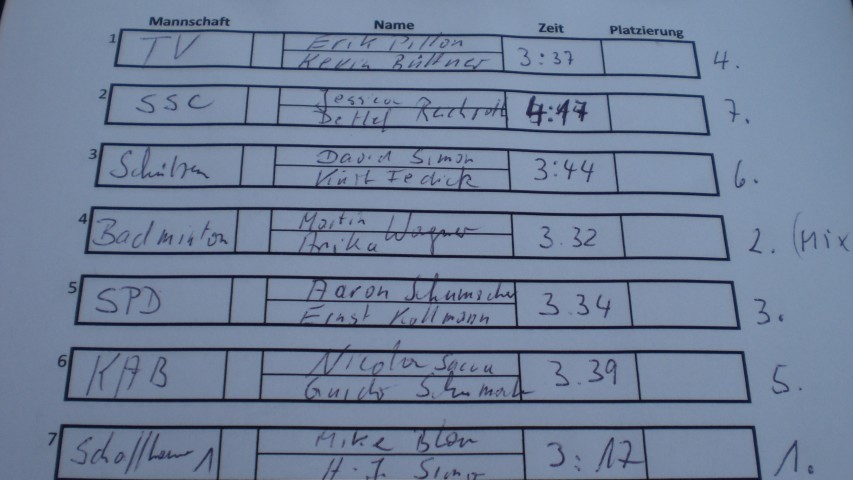 Mannschaft Name Zeit Platzierung
1 TV Erik Pillon 3:37 4.
Kevin Büttner
2 SSC Jessica 4:17 7.
Detlef
3 Schützen David Simon 3:44 6.
Kurt
4 Badminton Martin Wagner 3.32 2. (Mix
Anika
5 SPD Aaron 3.34 3.
Ernst Kollmann
6 KAB Nicola 3.39 5.
Guido
7 1 Mike 3:17 1.
H.J. Simon